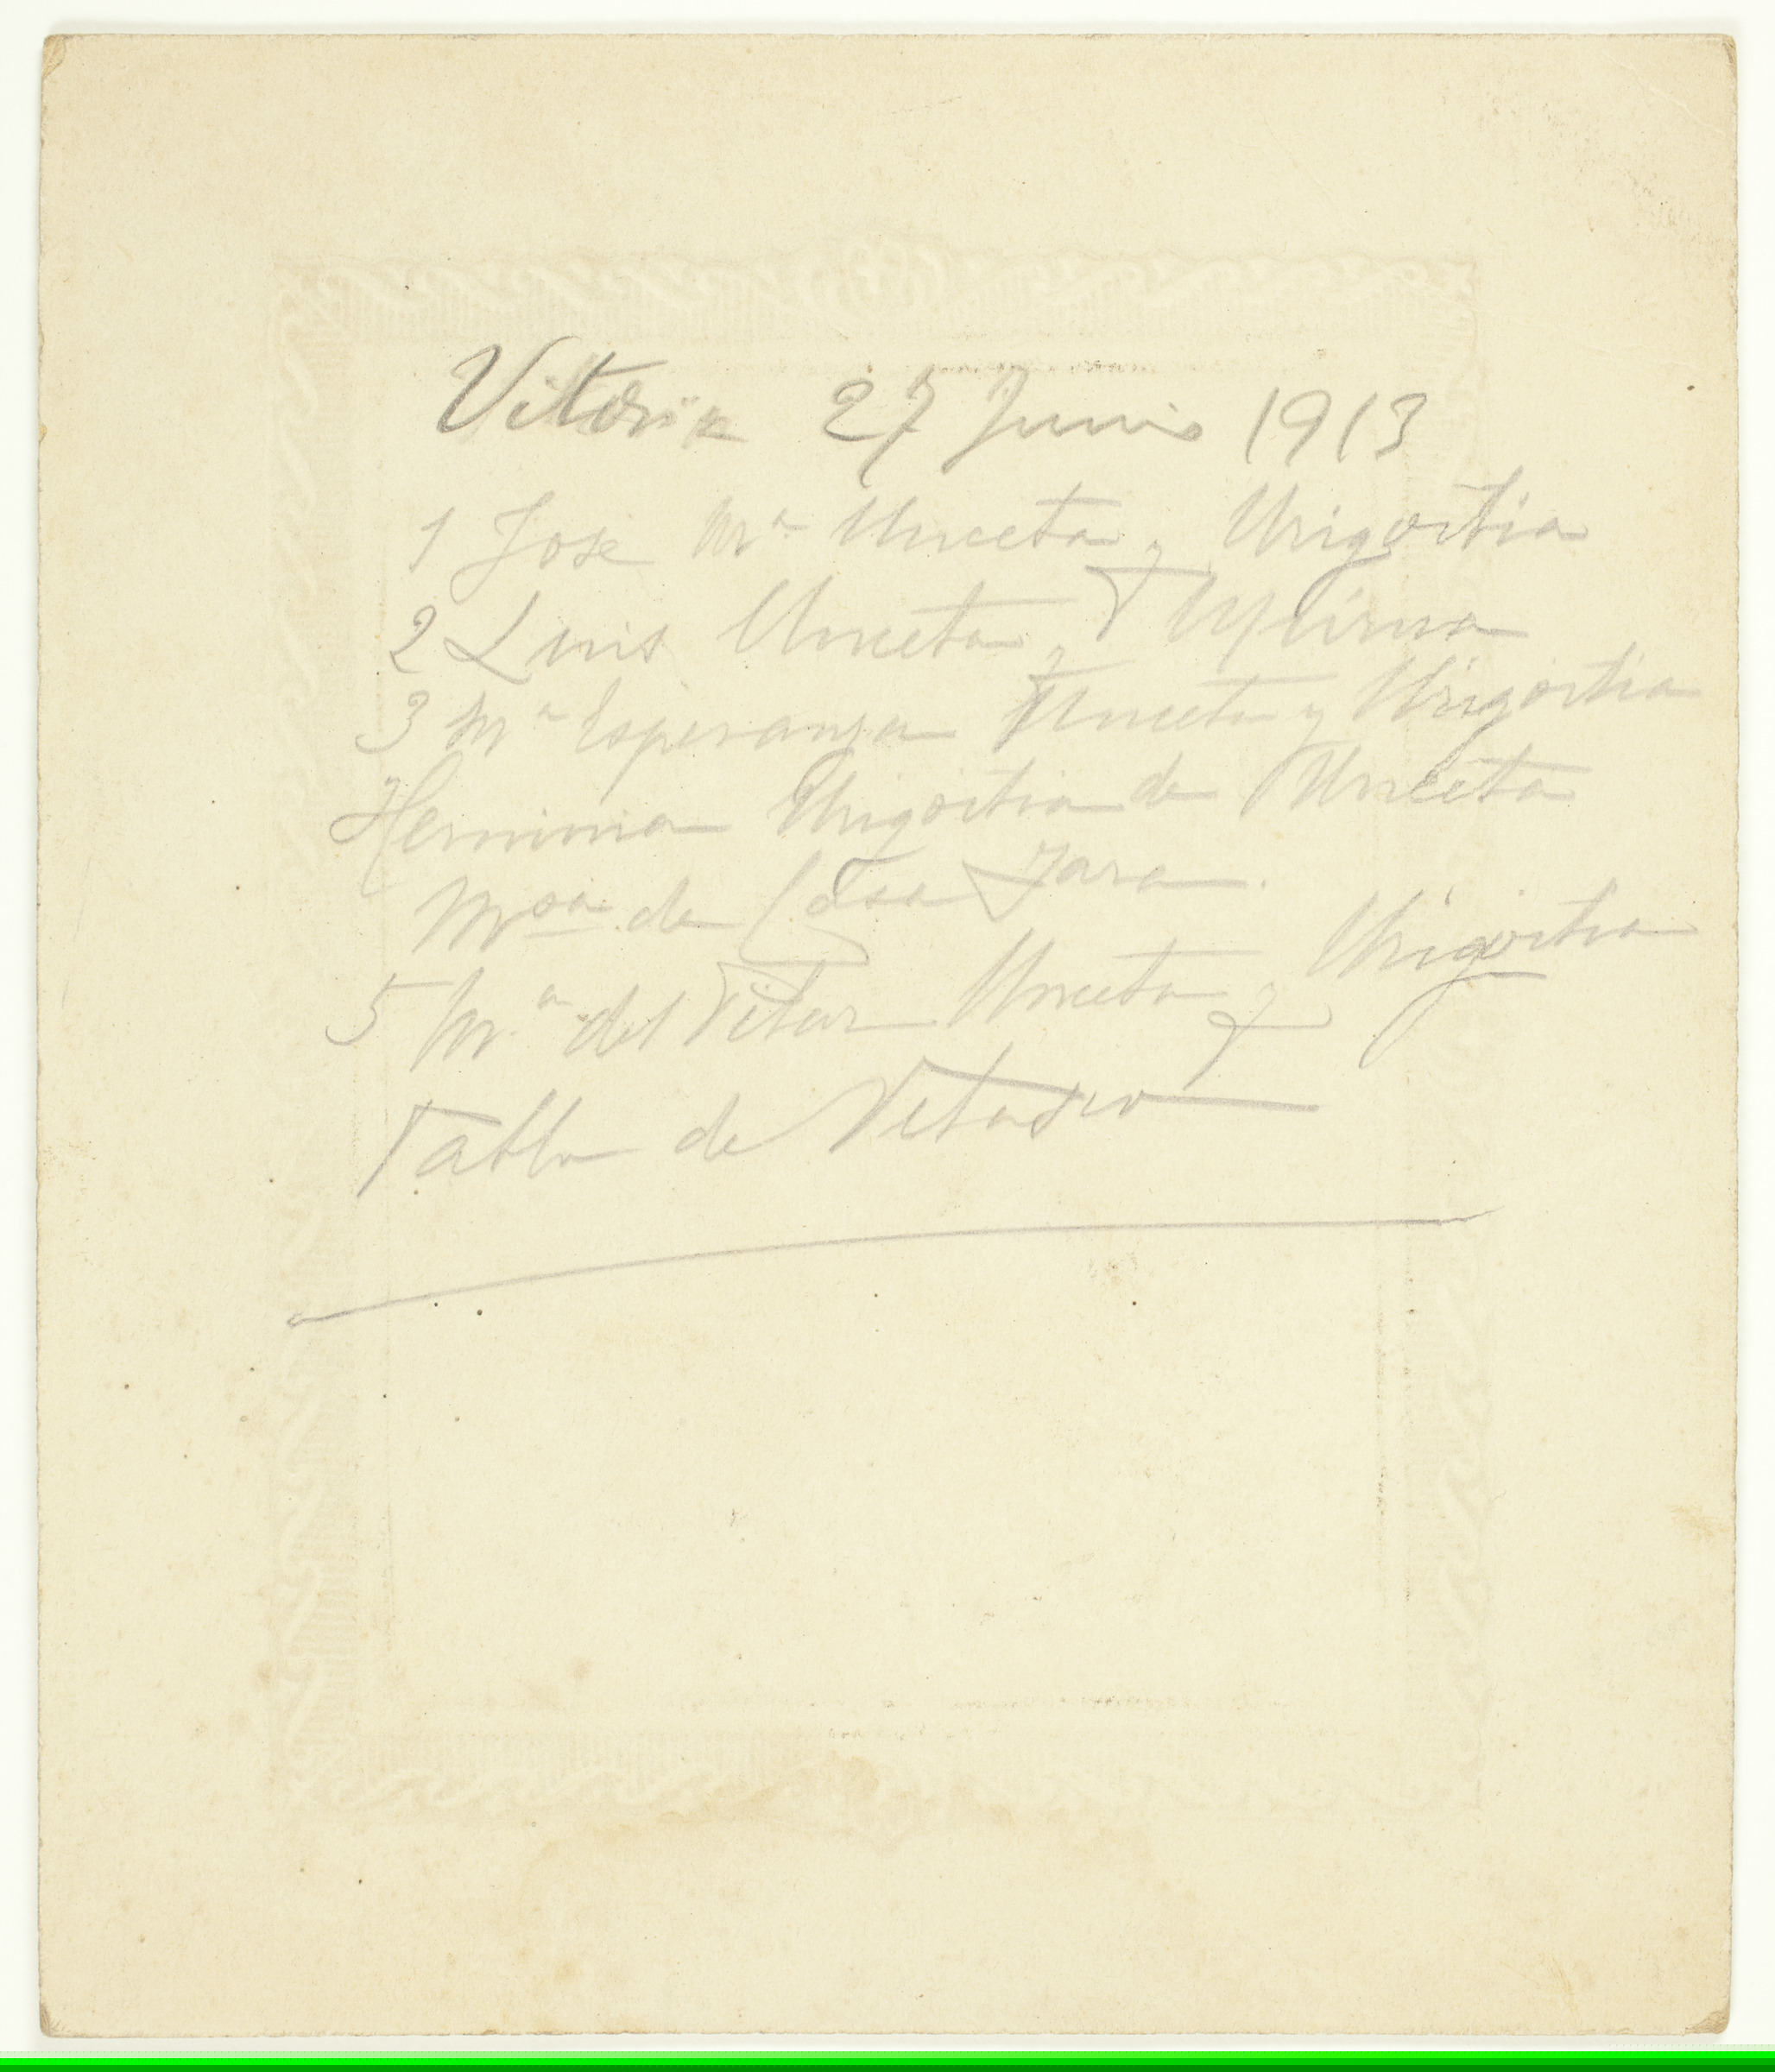 Vitoria 27 Junio 1913
1 Jose Mª Unceta y Urigoitia
2 Luis Unceta y
3 Mª Esperanza Unceta y Urigoitia
Herminia Urigoitia de Unceta
de Casa Jara.
5 Mª del Pilar Unceta y Urigoitia
Tabla de